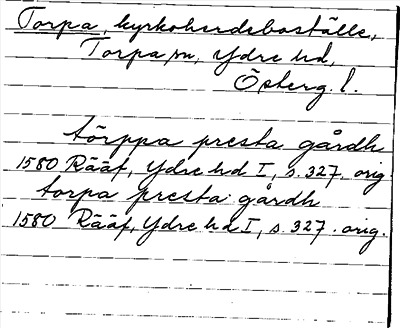 Torpa, kyrkoherdeboställe,
Torpa sn, Ydre hd,
Österg. l.
törppa presta gårdh
1580 Rääf, Ydre hd I, s. 327. orig
torpa presta gårdh
1580 Rääf, Ydre hd I, s. 327. orig.